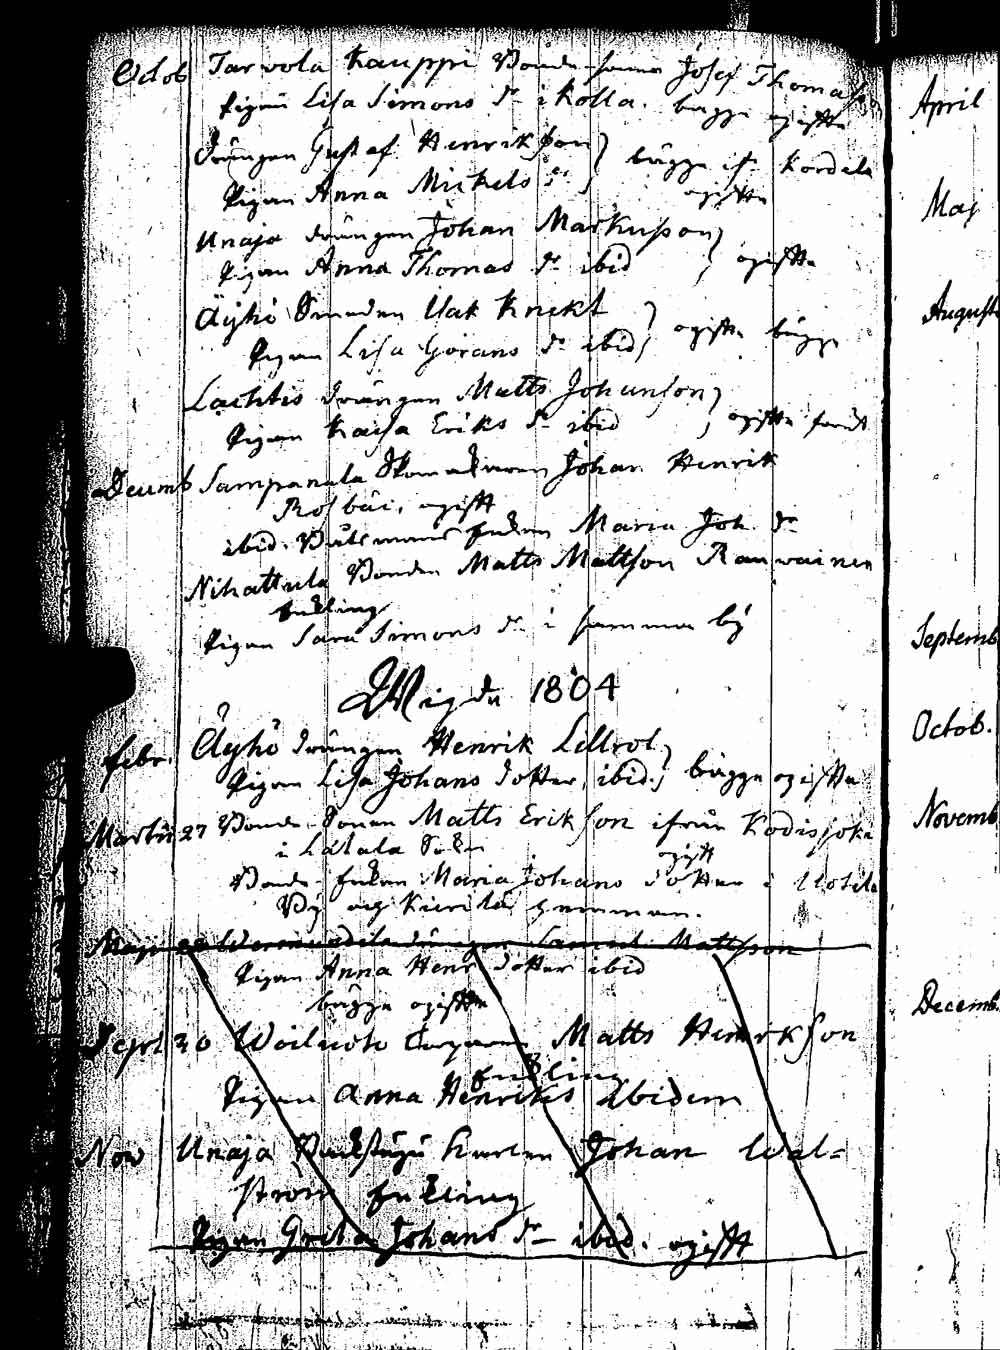 Octob Tarvola Kauppi Bonde-sonen Josef Thomasson
Pigan Lisa Simons dr i Kolla. bägge ogifta
Drängen Gustaf Henriksson
Pigan Anna Mickels dr bägge ifr Kordela ogifta
Unaja drängen Johan Markusson
Pigan Anna Thomas dr ibid ogifta
Äyhö Smeden Isak Knekt
Pigan Lisa Görans dr ibid ogifta bägge
Lachtis drängen Matts Johansson
Pigan Kaisa Eriks dr ibid ogifta
Decemb Sampanala Skomakaren Johan Henrik
ogift
ibid. Enkan Maria Joh. dr
Nihattula Bonden Matts Mattson Rauvainen
Enkling
Pigan Sara Simons dr i samma by
Wigde 1804
Febr. Äyhö drängen Henrik Lillrot
Pigan Lisa Johans dotter, ibid. bägge ogifta
Martii 27 Bonde-Sonen Matts Erikson ifrån Kodisjoki
i Latala Sokn
ogift
Bonde-Enkan Maria Johans dotter i Uotila
By og Kierila hemman.
Maji drängen Samuel Mattsson
Pigan Anna Henr dotter ibid
bägge ogifta
Sept 30 Matts Henrikson
Enkling
Pigan Anna Henriks ibidem
Nov Unaja Karlen Johan Wal=
strom Enkling
Pigan Greta Johans dr ibid. ogift
April
Maj
August
Septemb
Octob.
Novemb
Decemb.